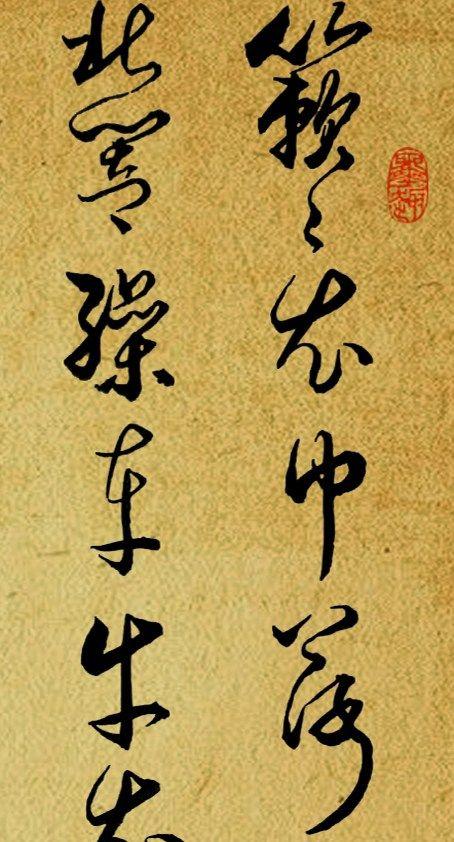 簌〻衣巾落
北響繰車牛衣